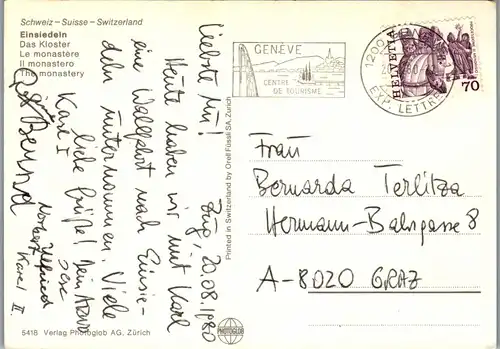 Schweiz – Suisse – Switzerland
Einsiedeln
Das Kloster
Le monastère
Il monastero
The monastery
Zug, 20.08.1980
Liebste Mu!
Heute haben wir mit Karl
eine Wallfahrt nach Einsie-
deln unternommen. Viele
liebe Grüße! Dein
Karl I
Bernd
Norbert
Wilfried
Karl II.
5418 Verlag Photoglob AG, Zürich
Printed in Switzerland by Orell Füssli SA, Zürich
PHOTOGLOB
GENÈVE
CENTRE
DE TOURISME
1200
EXP. LETTRES
HELVETIA
70
Frau
Bernarda Terlitza
Hermann-Bahrgasse 8
A-8020 GRAZ